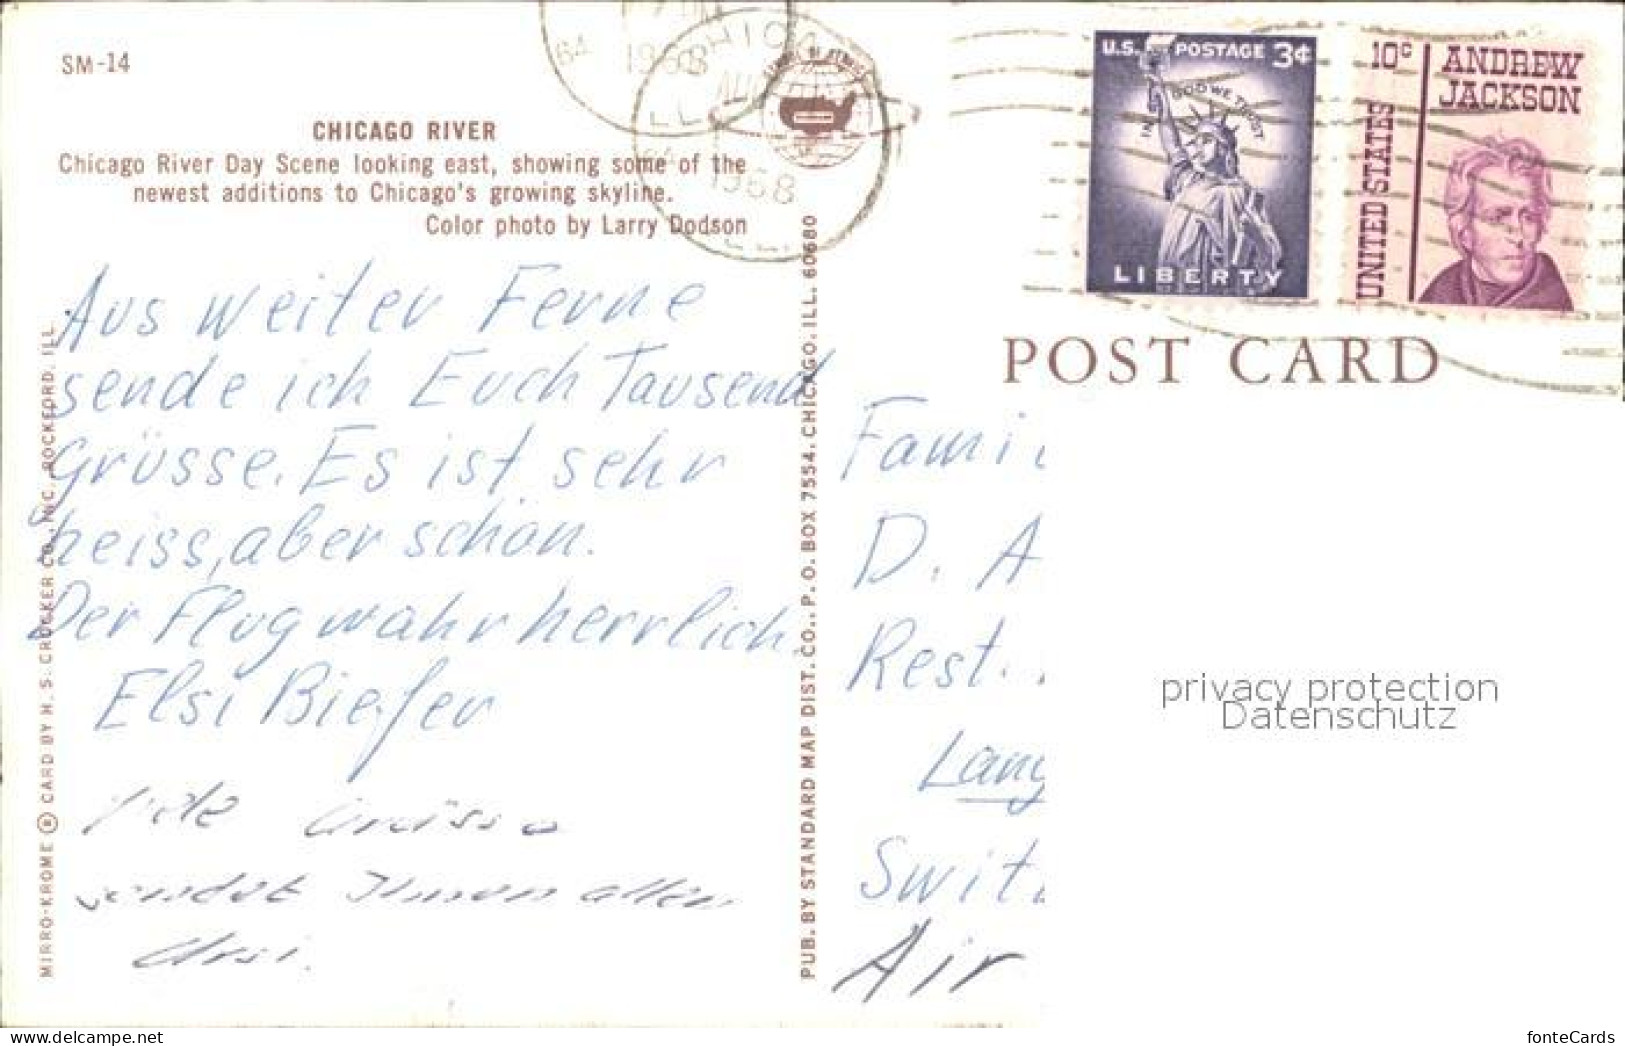 SM-14
CHICAGO RIVER
Chicago River Day Scene looking east, showing some of the
newest additions to Chicago's growing skyline.
Color photo by Larry Dodson
Aus weiter Ferne
sende ich Euch Tausend
Grüsse. Es ist sehr
heiss, aber schön.
Der Flug wahr herrlich.
Elsi Biefer
Viele Grüsse
sendet Ihnen allen
Ursi.
MIRRO-KROME ® CARD BY H. S. CROCKER CO., INC. ROCKFORD, ILL.
PUB. BY STANDARD MAP DIST. CO., P. O. BOX 7554, CHICAGO, ILL. 60680
1968
1968
U.S. POSTAGE 3¢
IN GOD WE TRUST
LIBERTY
10c ANDREW
JACKSON
UNITED STATES
POST CARD
Fami
D. A
Rest.
Lang
Swit
Air
privacy protection
Datenschutz
www.delcampe.net
fonteCards